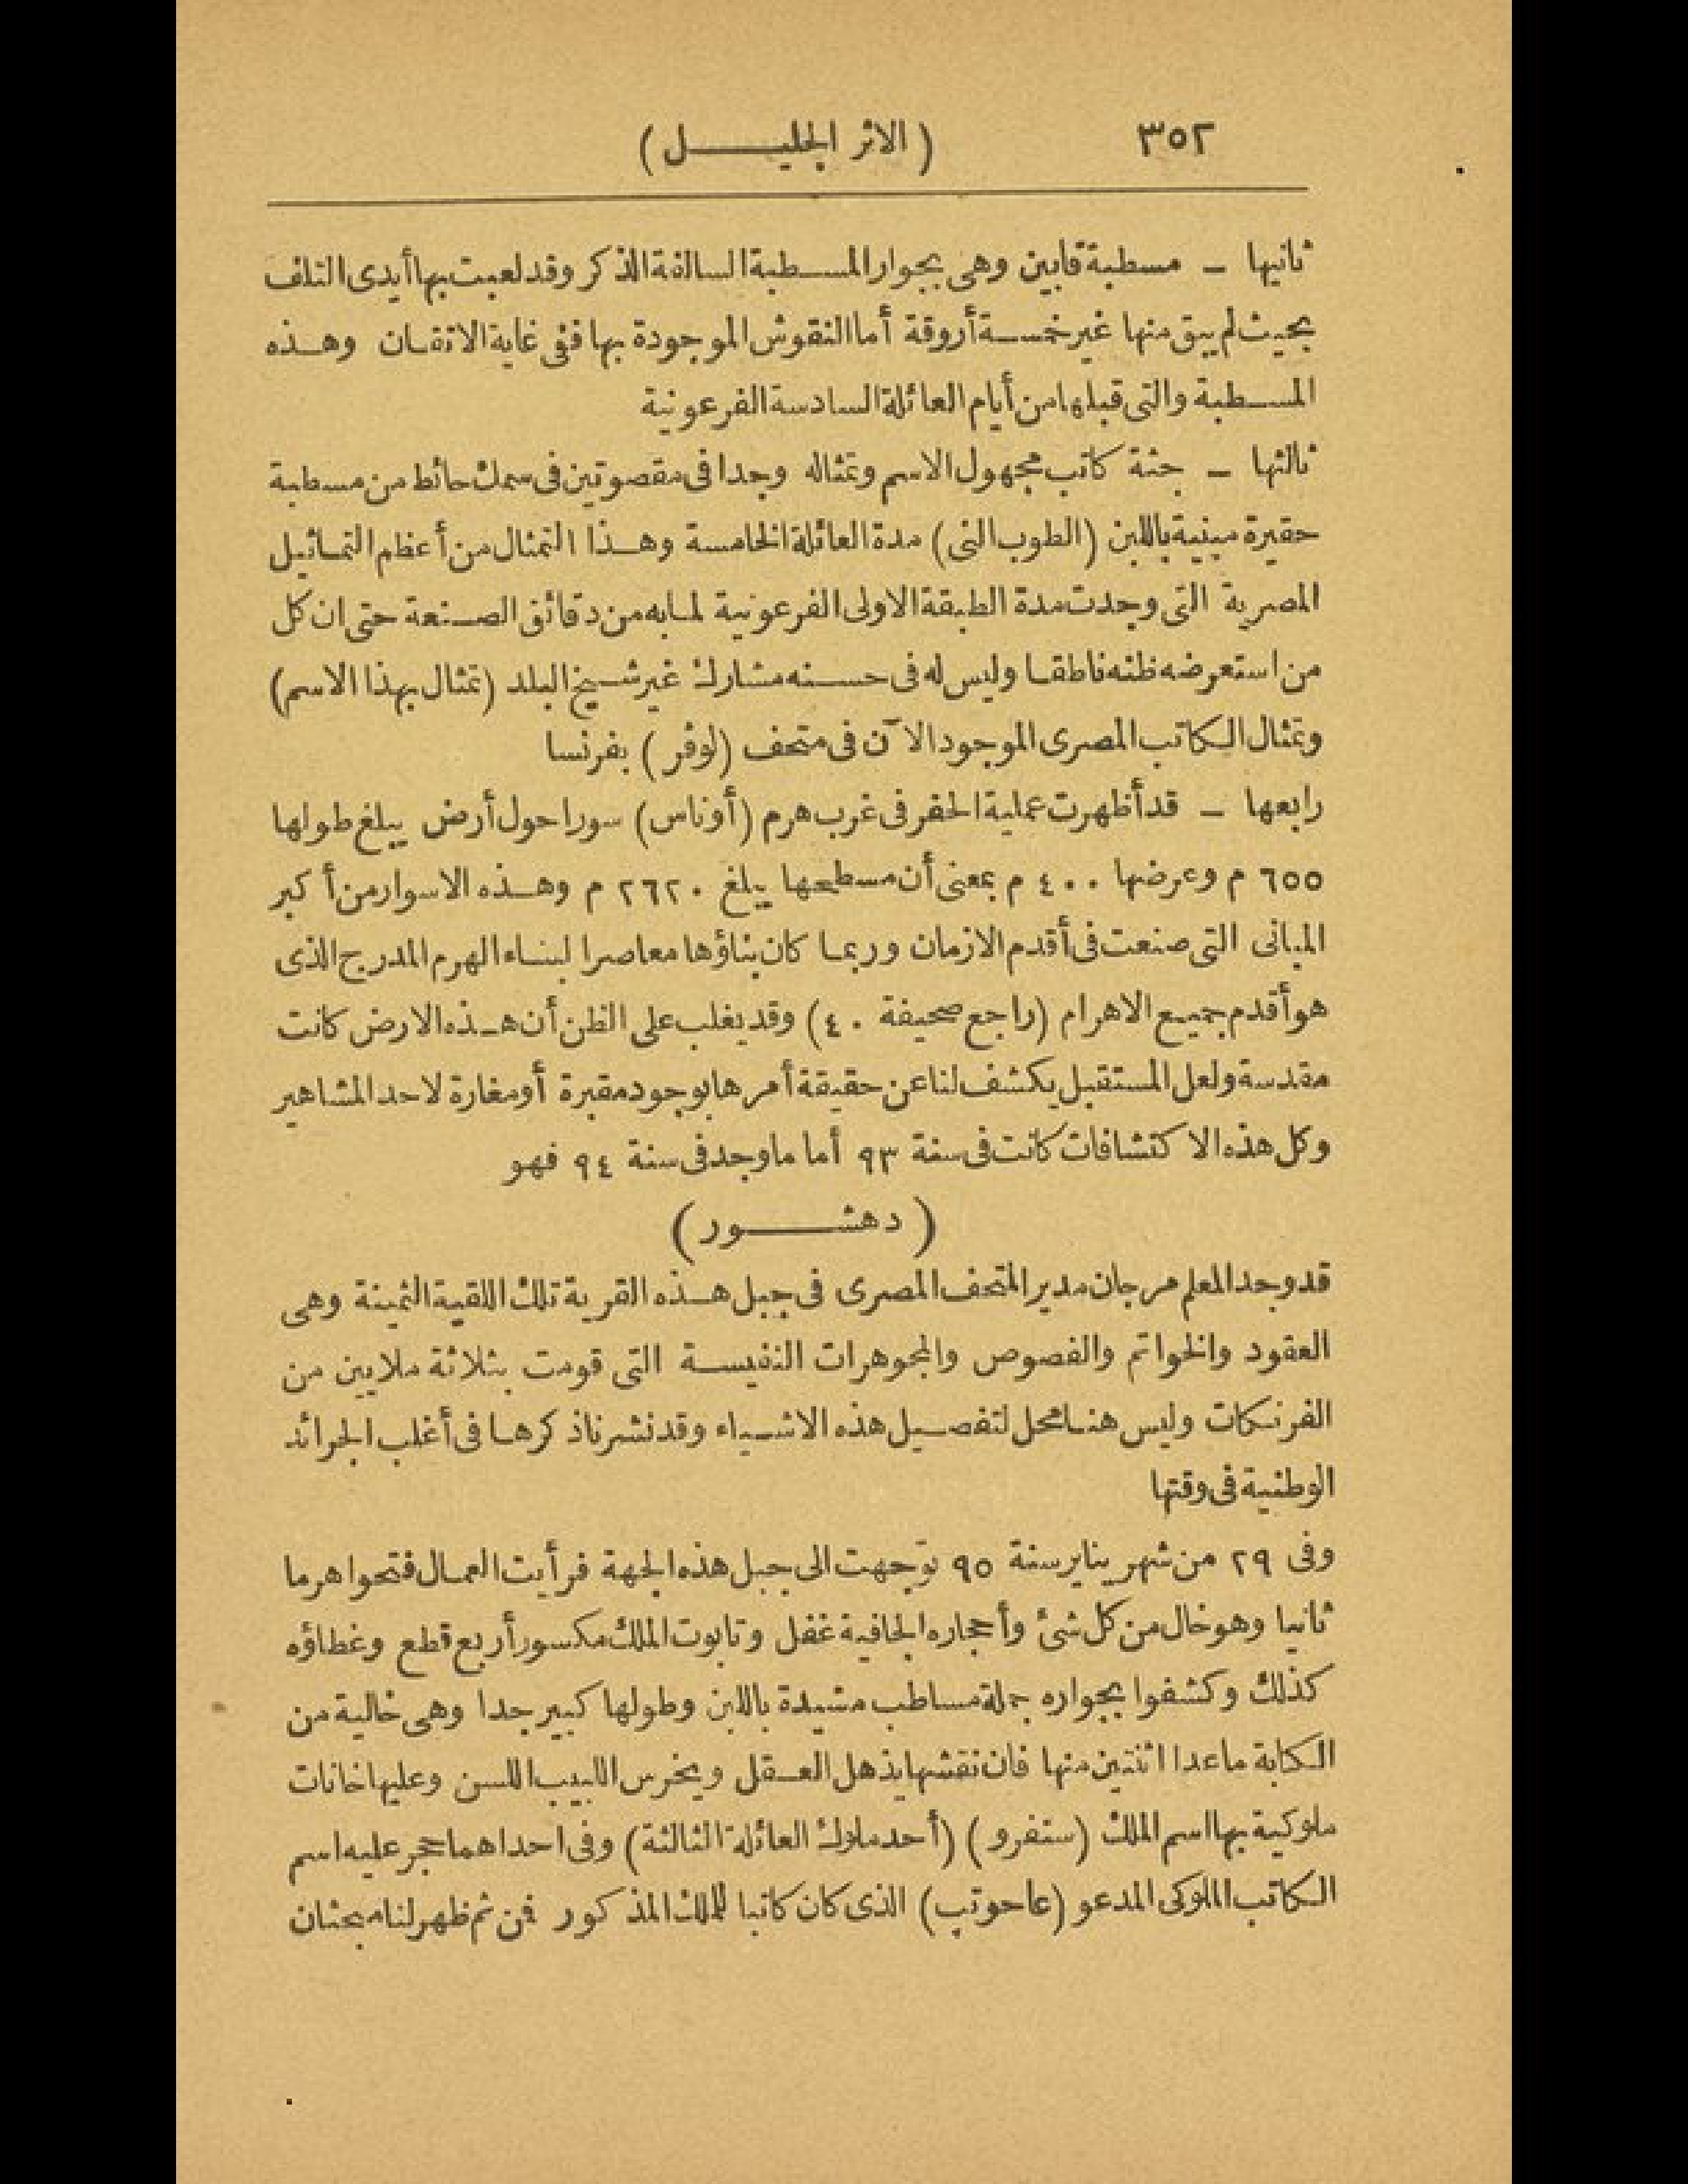 ٣٥٢ ( الاثر الجليل )
ثانيها - مسطبة قابين وهى بجوار المسطبة السالفة الذكر وقد لعبت بها أيدى التلف
بحيث لم يبق منها غير خمسة أروقة أما النقوش الموجودة بها ففى غاية الاتقان وهذه
المسطبة والتى قبلها من أيام العائلة السادسة الفرعونية
ثالثها - جثة كاتب مجهول الاسم وتمثاله وجدا فى مقصوتين فى سمك حائط من مسطبة
حقيرة مبنية باللبن (الطوب النى) مدة العائلة الخامسة وهذا التمثال من أعظم التماثيل
المصرية التى وجدت مدة الطبقة الاولى الفرعونية لما به من دقائق الصنعة حتى ان كل
من استعرضه ظنه ناطقا وليس له فى حسنه مشارك غير شيخ البلد (تمثال بهذا الاسم)
وتمثال الكاتب المصرى الموجود الآن فى متحف (لوفر) بفرنسا
رابعها - قد أظهرت عملية الحفر فى غرب هرم (أوناس) سورا حول أرض يبلغ طولها
٦٥٥ م وعرضها ٤٠٠ م بمعنى أن مسطحها يبلغ ٢٦٢٠ م وهذه الاسوار من أكبر
المبانى التى صنعت فى أقدم الازمان وربما كان بناؤها معاصرا لبناء الهرم المدرج الذى
هو أقدم جميع الاهرام (راجع صحيفة ٤٠) وقد يغلب على الظن أن هذه الارض كانت
مقدسة ولعل المستقبل يكشف لنا عن حقيقة أمرها بوجود مقبرة أو مغارة لاحد المشاهير
وكل هذه الاكتشافات كانت فى سنة ٩٣ أما ما وجد فى سنة ٩٤ فهو
( دهشور )
قد وجد المعلم مرجان مدير المتحف المصرى فى جبل هذه القرية تلك اللقية الثمينة وهى
العقود والخواتم والفصوص والمجوهرات النفيسة التى قومت بثلاثة ملايين من
الفرنكات وليس هنا محل لتفصيل هذه الاشياء وقد نشرنا ذكرها فى أغلب الجرائد
الوطنية فى وقتها
وفى ٢٩ من شهر يناير سنة ٩٥ توّجهت الى جبل هذه الجهة فرأيت العمال فتحوا هرما
ثانيا وهو خال من كل شئ وأحجاره الجافية غفل وتابوت الملك مكسور أربع قطع وغطاؤه
كذلك وكشفوا بجواره جملة مساطب مشيدة باللبن وطولها كبير جدا وهى خالية من
الكتابة ماعدا اثنتين منها فان نقشها يذهل العقل ويخرس اللبيب اللسن وعليها خانات
ملوكية بها اسم الملك (سنفرو) (أحد ملوك العائلة الثالثة) وفى احداهما حجر عليه اسم
الكاتب الملوكى المدعو (عاحوتپ) الذى كان كاتبا للملك المذكور فمن ثم ظهر لنا مبحثان